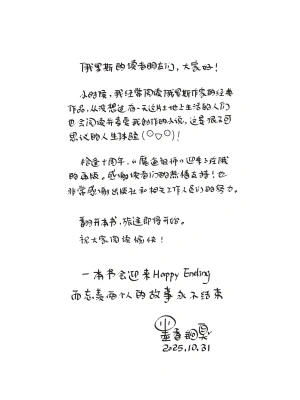 俄罗斯的读者朋友们，大家好！
小时候，我经常阅读俄罗斯作家的经典
作品，从没想过有一天这片土地上生活的人们
也会阅读并喜爱我创作的小说，这是很不可
思议的人生体验(○♡○)！
恰逢十周年，《魔道祖师》迎来了在俄
的再版。感谢读者们的热情支持！也
非常感谢出版社和相关工作人员们的努力。
翻开本书，旅途即得开始。
祝大家阅读愉快！
一本书会迎来Happy Ending
而忘羡两个人的故事永不结束
墨香铜臭
2025.10.31